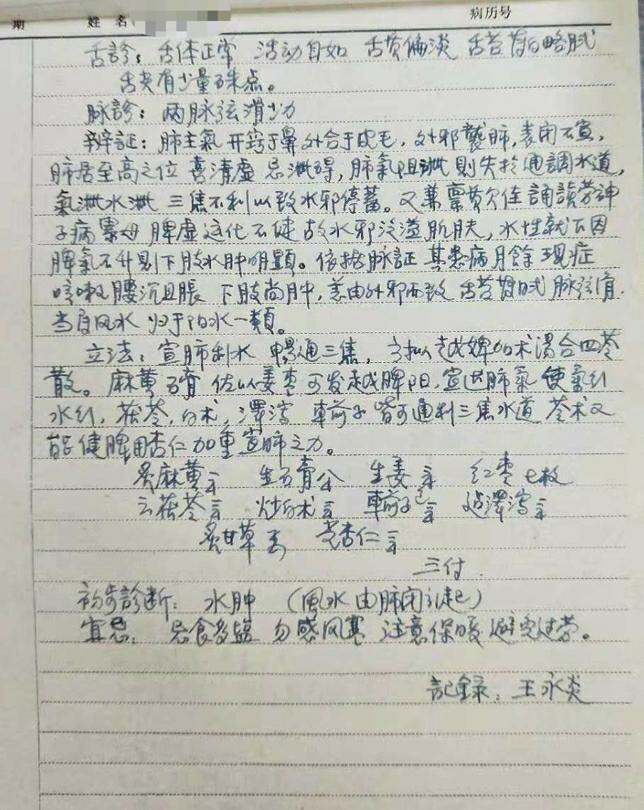 期 姓名 病历号
舌診：舌体正常 活动自如 舌质偏淡 舌苔苔白略腻
舌尖有少量珠点。
脉診：两脉弦滑少力
辨証：肺主氣 开窍于鼻 外合于皮毛，外邪襲肺，表闭不宣，
肺居至高之位 喜清虚 忌滞碍，肺氣阻滞则失於通調水道，
氣滞水滞 三焦不利以致水邪停蓄。又兼禀质欠佳 誦讀劳神
子病累母 脾虚运化不健 故水邪泛溢肌肤，水性就下因
脾氣不升则下肢水肿明顯。依据脉証 其患病月餘 现症
咳嗽 腰沉且脹 下肢尚肿，意由外邪而致 舌苔苔腻 脉弦滑
当属风水 归于阳水一類。
立法：宣肺利水 暢通三焦，方拟越婢加术湯合四苓
散。麻黄 石膏 佐以姜枣 可发越脾阳，宣达肺氣 使氣行
水行，茯苓，白术，澤泻 車前子 皆可通利三焦水道，苓术又
能健脾 用杏仁加重宣肺之力。
炙麻黄 生石膏 生姜 红枣七枚
云茯苓 炒白术 車前子 建澤泻
炙甘草 苦杏仁
三付
初步診断：水肿（風水 由肺闭引起）
宜忌：忌食多盐 勿感风寒 注意保暖 避免过劳。
記録：王永炎